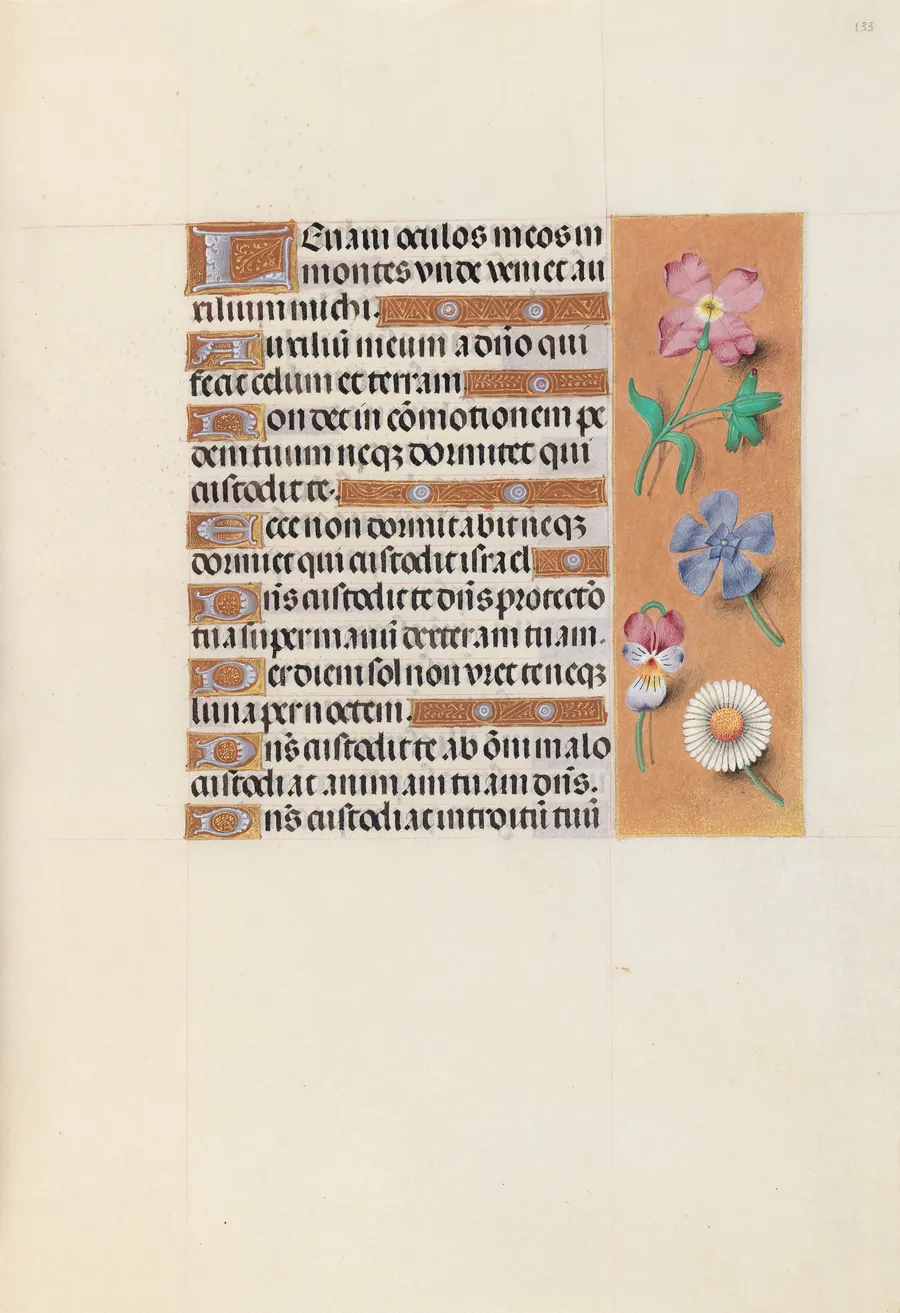 133
LEuam oculos meos in
montes vnde veniet au
xilium michi.
Auxiliū meum a dño qui
fecit celum et terram.
Non det in cōmotionem pe
dem tuum neqꝫ dormitet qui
custodit te.
Ecce non dormitabit neqꝫ
dormiet qui custodit israel.
Dñs custodit te dñs protectō
tua super manū dexteram tuam.
Per diem sol non vret te neqꝫ
luna per noctem.
Dñs custodit te ab ōmi malo
custodiat animam tuam dñs.
Dñs custodiat introitū tuū